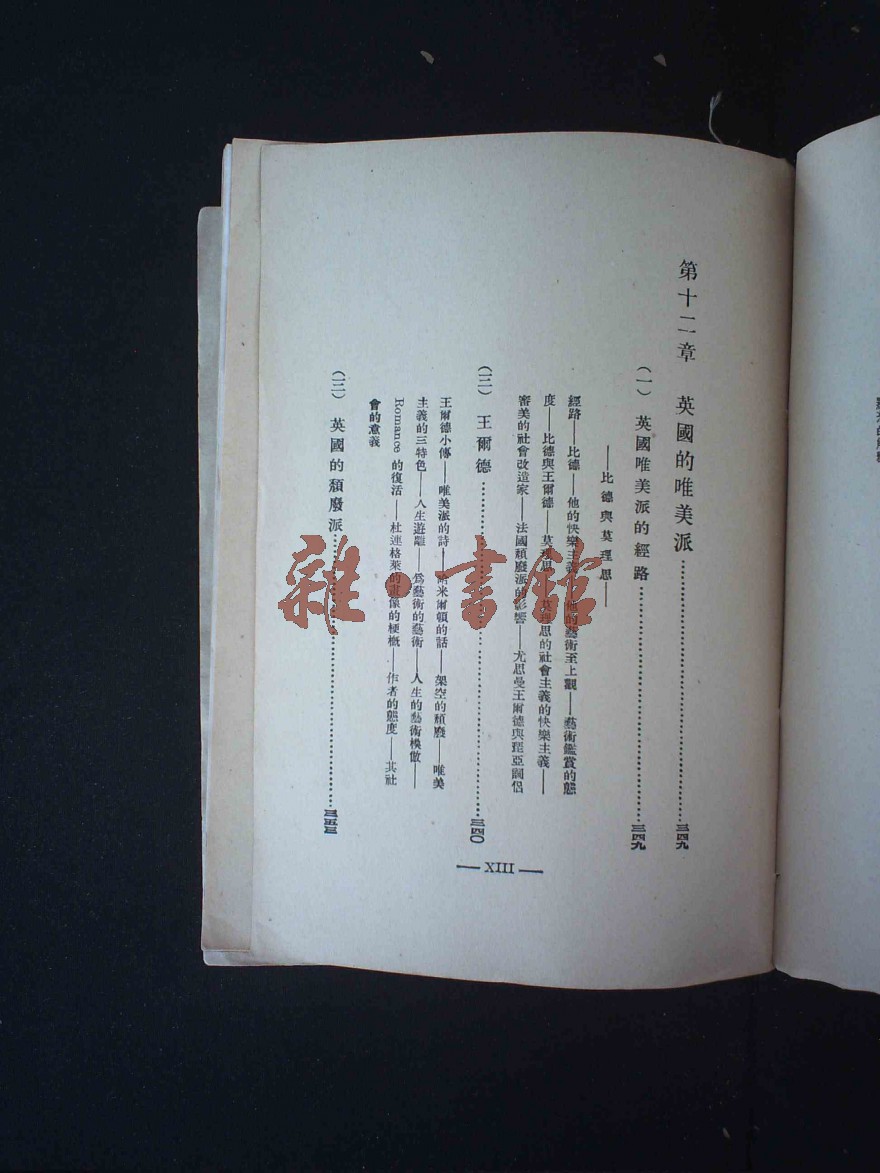 第十二章　英國的唯美派……三四九
(一)　英國唯美派的經路……三四九
——比德與莫理思——
經路——比德——他的快樂主義——他的藝術至上觀——藝術鑑賞的態
度——比德與王爾德——莫理思——莫理思的社會主義的快樂主義——
審美的社會改造家——法國頹廢派的影響——尤思曼王爾德與琵亞詞侶
(二)　王爾德……三四〇
王爾德小傳——唯美派的詩——哈米爾頓的話——架空的頹廢——唯美
主義的三特色——人生遊離——爲藝術的藝術——人生的藝術模倣——
Romance 的復活——杜連格萊的畫像的梗概——作者的態度——其社
會的意義
(三)　英國的頹廢派……三五三
— XIII —
雜·書館